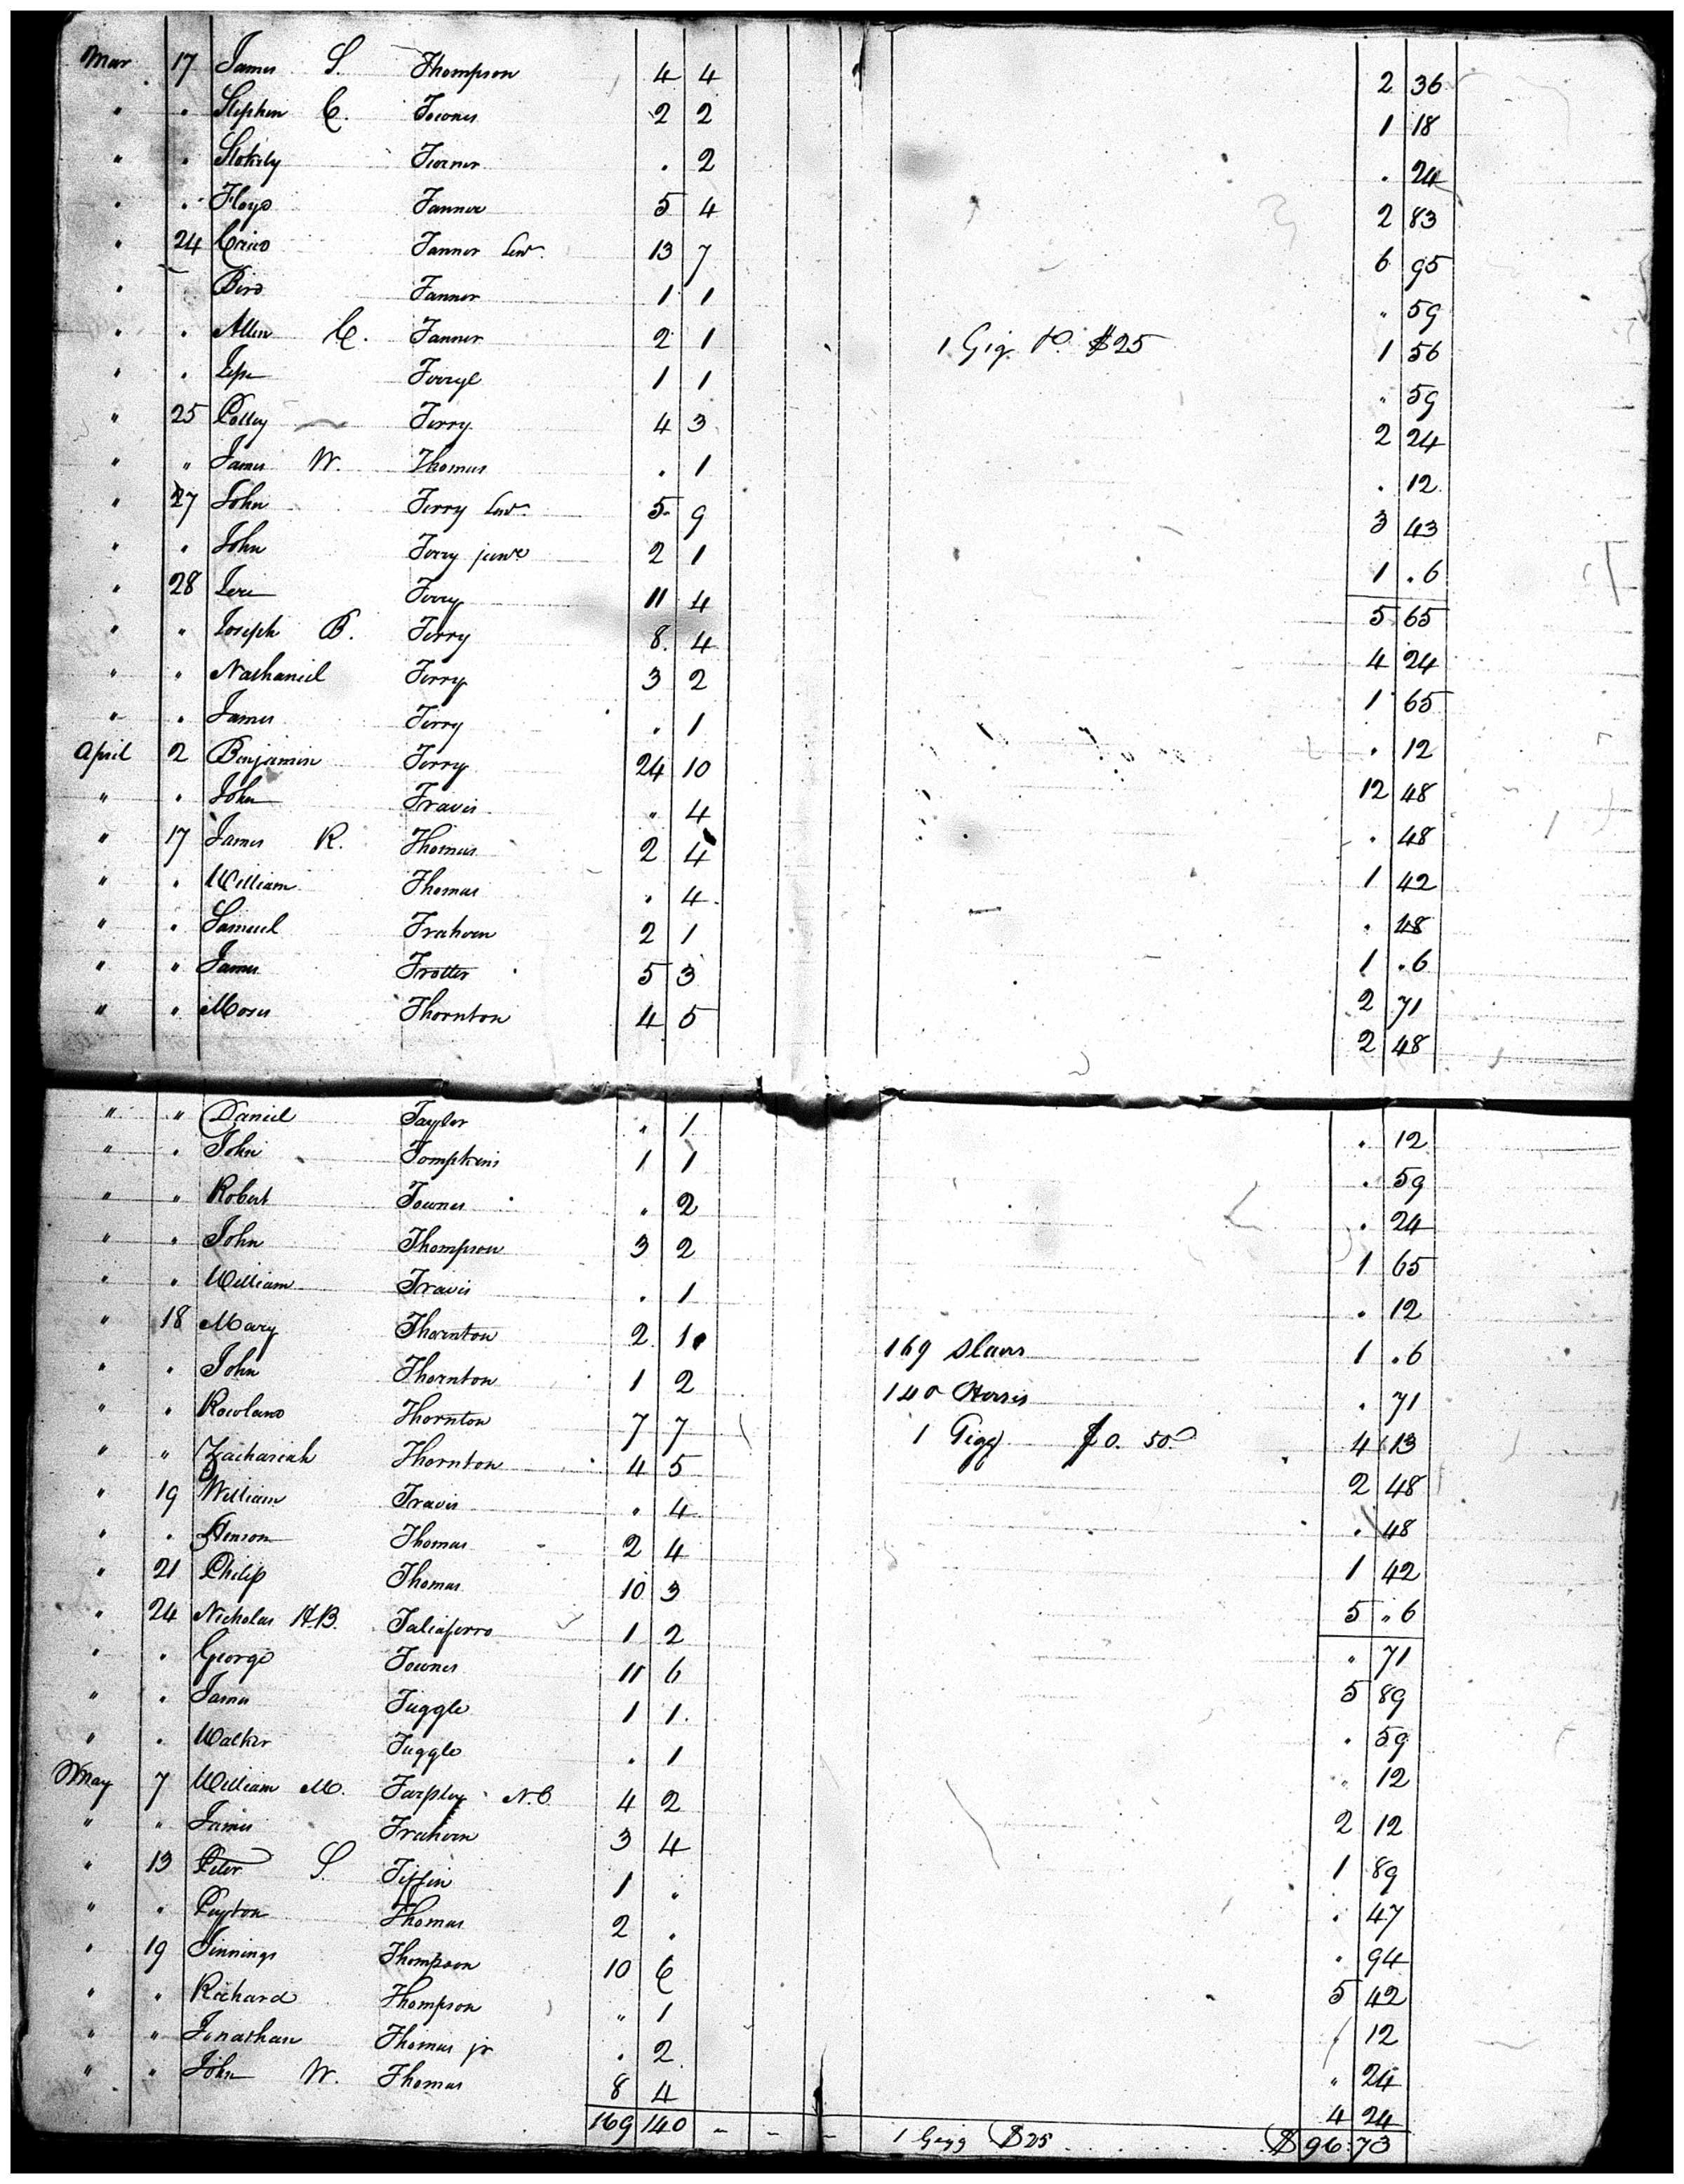 Mar 17 James S. Thompson 4 4 2 36
" " Stephen C. Townes 2 2 1 18
" " Stokely Turner . 2 . 24
" " Floyd Tanner 5 4 2 83
" 24 Creed Tanner Senr. 13 7 6 95
" Bird Tanner 1 1 " 59
" " Allen C. Tanner 2 1 1 Gig \$25 1 56
" " 1 1 " 59
" 25 Polley Terry 4 3 2 24
" " James W. Thomas . 1 . 12
" 27 John Terry Senr. 5 9 3 43
" " John Terry junr 2 1 1 . 6
" 28 Levi Terry 11 4 5 65
" " Joseph B. Terry 8 4 4 24
" " Nathaniel Terry 3 2 1 65
" " James Terry . 1 . 12
April 2 Benjamin Terry 24 10 12 48
" " John Travis " 4 . 48
" 17 James R. Thomas 2 4 1 42
" " William Thomas . 4 . 48
" " Samuel Trahern 2 1 1 . 6
" " James Trotter 5 3 2 71
" " Moses Thornton 4 5 2 48
" " Daniel Taylor " 1 . 12
" " John Tompkins 1 1 . 59
" " Robert Townes " 2 . 24
" " John Thompson 3 2 1 65
" " William Travis . 1 . 12
" 18 Mary Thornton 2 1 169 Slaves 1 . 6
" " John Thornton 1 2 140 Horses . 71
" " Rowland Thornton 7 7 1 Gigg \$0. 50. 4 13
" " Zachariah Thornton 4 5 2 48
" 19 William Travis " 4 . 48
" " Henson Thomas 2 4 1 42
" 21 Philip Thomas 10 3 5 " 6
" 24 Nicholas H.B. Taliaferro 1 2 " 71
" " George Townes 11 6 5 89
" " James Tuggle 1 1 . 59
" " Walker Tuggle . 1 " 12
May 7 William M. Tarpley N.C. 4 2 2 12
" " James Trahern 3 4 1 89
" 13 Peter S. Tiffin 1 " . 47
" " Peyton Thomas 2 . " 94
" 19 Jinnings Thompson 10 6 5 42
" " Richard Thompson " 1 12
" " Jonathan Thomas jr . 2 " 24
" " John W. Thomas 8 4 4 24
169 140 - - - 1 Gigg \$25 \$96.73